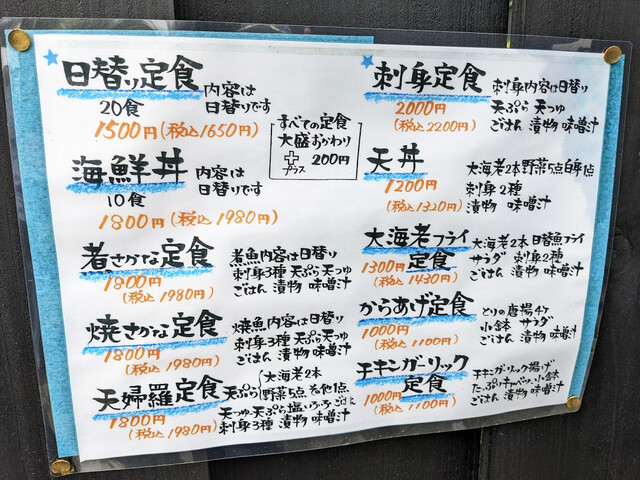 日替り定食
内容は
日替りです
20食
1500円(税込1650円)
すべての定食
大盛おかわり
プラス 200円
海鮮丼
内容は
日替りです
10食
1800円(税込1980円)
煮さかな定食
1800円
(税込1980円)
煮魚内容は日替り
刺身3種 天ぷら 天つゆ
ごはん 漬物 味噌汁
焼さかな定食
1800円
(税込1980円)
焼魚内容は日替り
刺身3種 天ぷら 天つゆ
ごはん 漬物 味噌汁
天婦羅定食
1800円
(税込1980円)
天ぷら 大海老2本
野菜5点 その他1点
天つゆ 天ぷら塩
刺身3種 漬物 味噌汁
刺身定食
2000円
(税込2200円)
刺身内容は日替り
天ぷら 天つゆ
ごはん 漬物 味噌汁
天丼
1200円
(税込1320円)
大海老2本 野菜5点 白身1点
刺身2種
漬物 味噌汁
大海老フライ
定食
1300円
(税込1430円)
大海老2本 日替魚フライ
サラダ 刺身2種
ごはん 漬物 味噌汁
からあげ定食
1000円
(税込1100円)
とりの唐揚4ケ
小鉢 サラダ
ごはん 漬物 味噌汁
チキンガーリック
定食
1000円
(税込1100円)
チキンガーリック揚げ
たっぷりキャベツ 小鉢
ごはん 漬物 味噌汁